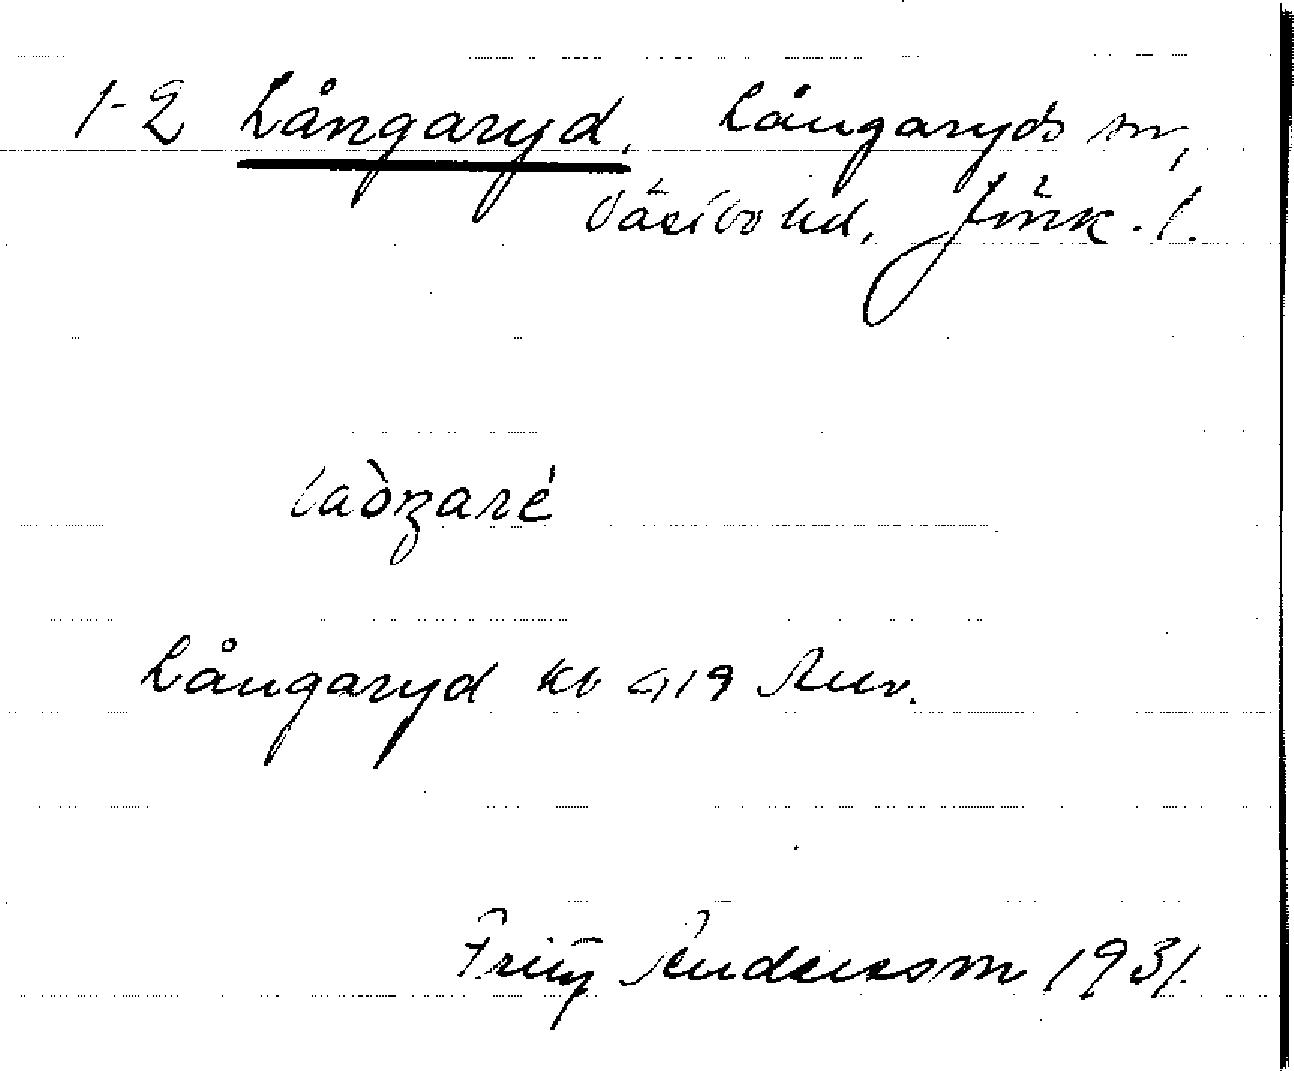 1-2 Långaryd. Långaryds sn,
Västbo hd, Jönk. l.
Långaryd kb 1919 Auv.
Fritz Andersson 1931.